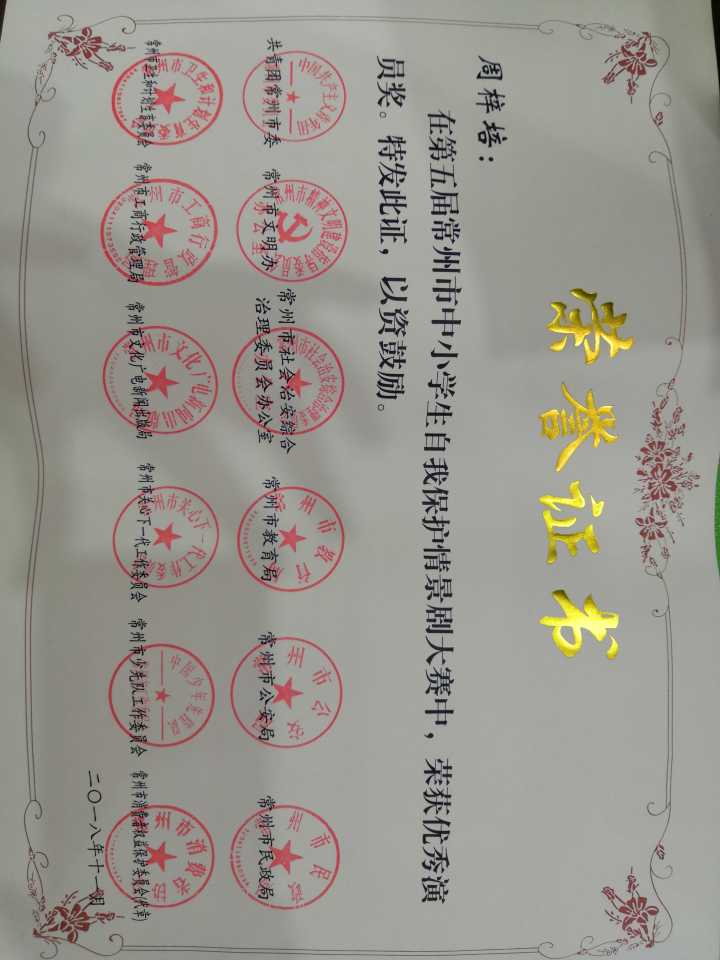 荣誉证书
周梓培：
在第五届常州市中小学生自我保护情景剧大赛中，荣获优秀演
员奖。特发此证，以资鼓励。
共青团常州市委 常州市文明办 常州市社会治安综合治理委员会办公室 常州市教育局 常州市公安局 常州市民政局
常州市卫生和计划生育委员会 常州市工商行政管理局 常州市文化广电新闻出版局 常州市关心下一代工作委员会 常州市少先队工作委员会 常州市消费者权益保护委员会(代章)
二〇一八年十一月